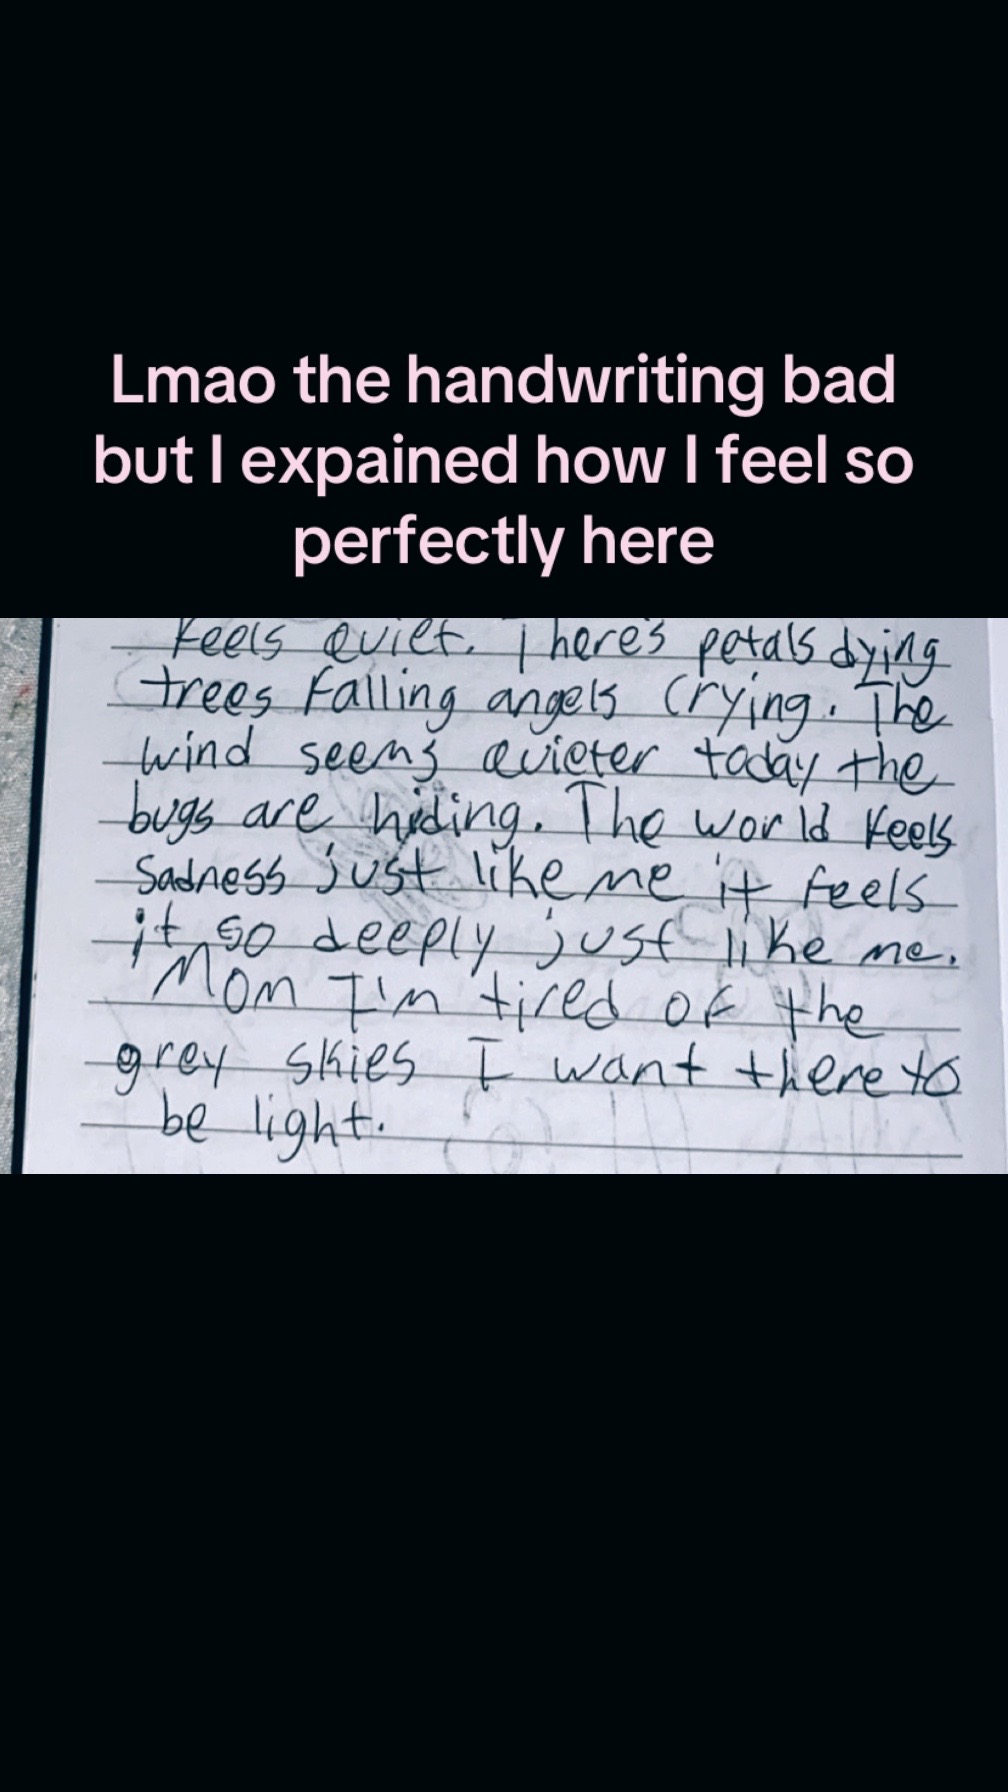 Lmao the handwriting bad
but I expained how I feel so
perfectly here
feels quiet. There's petals dying
trees falling angels crying. The
wind seems quieter today the
bugs are hiding. The world feels
sadness just like me it feels
it so deeply just like me.
Mom I'm tired of the
grey skies I want there to
be light.